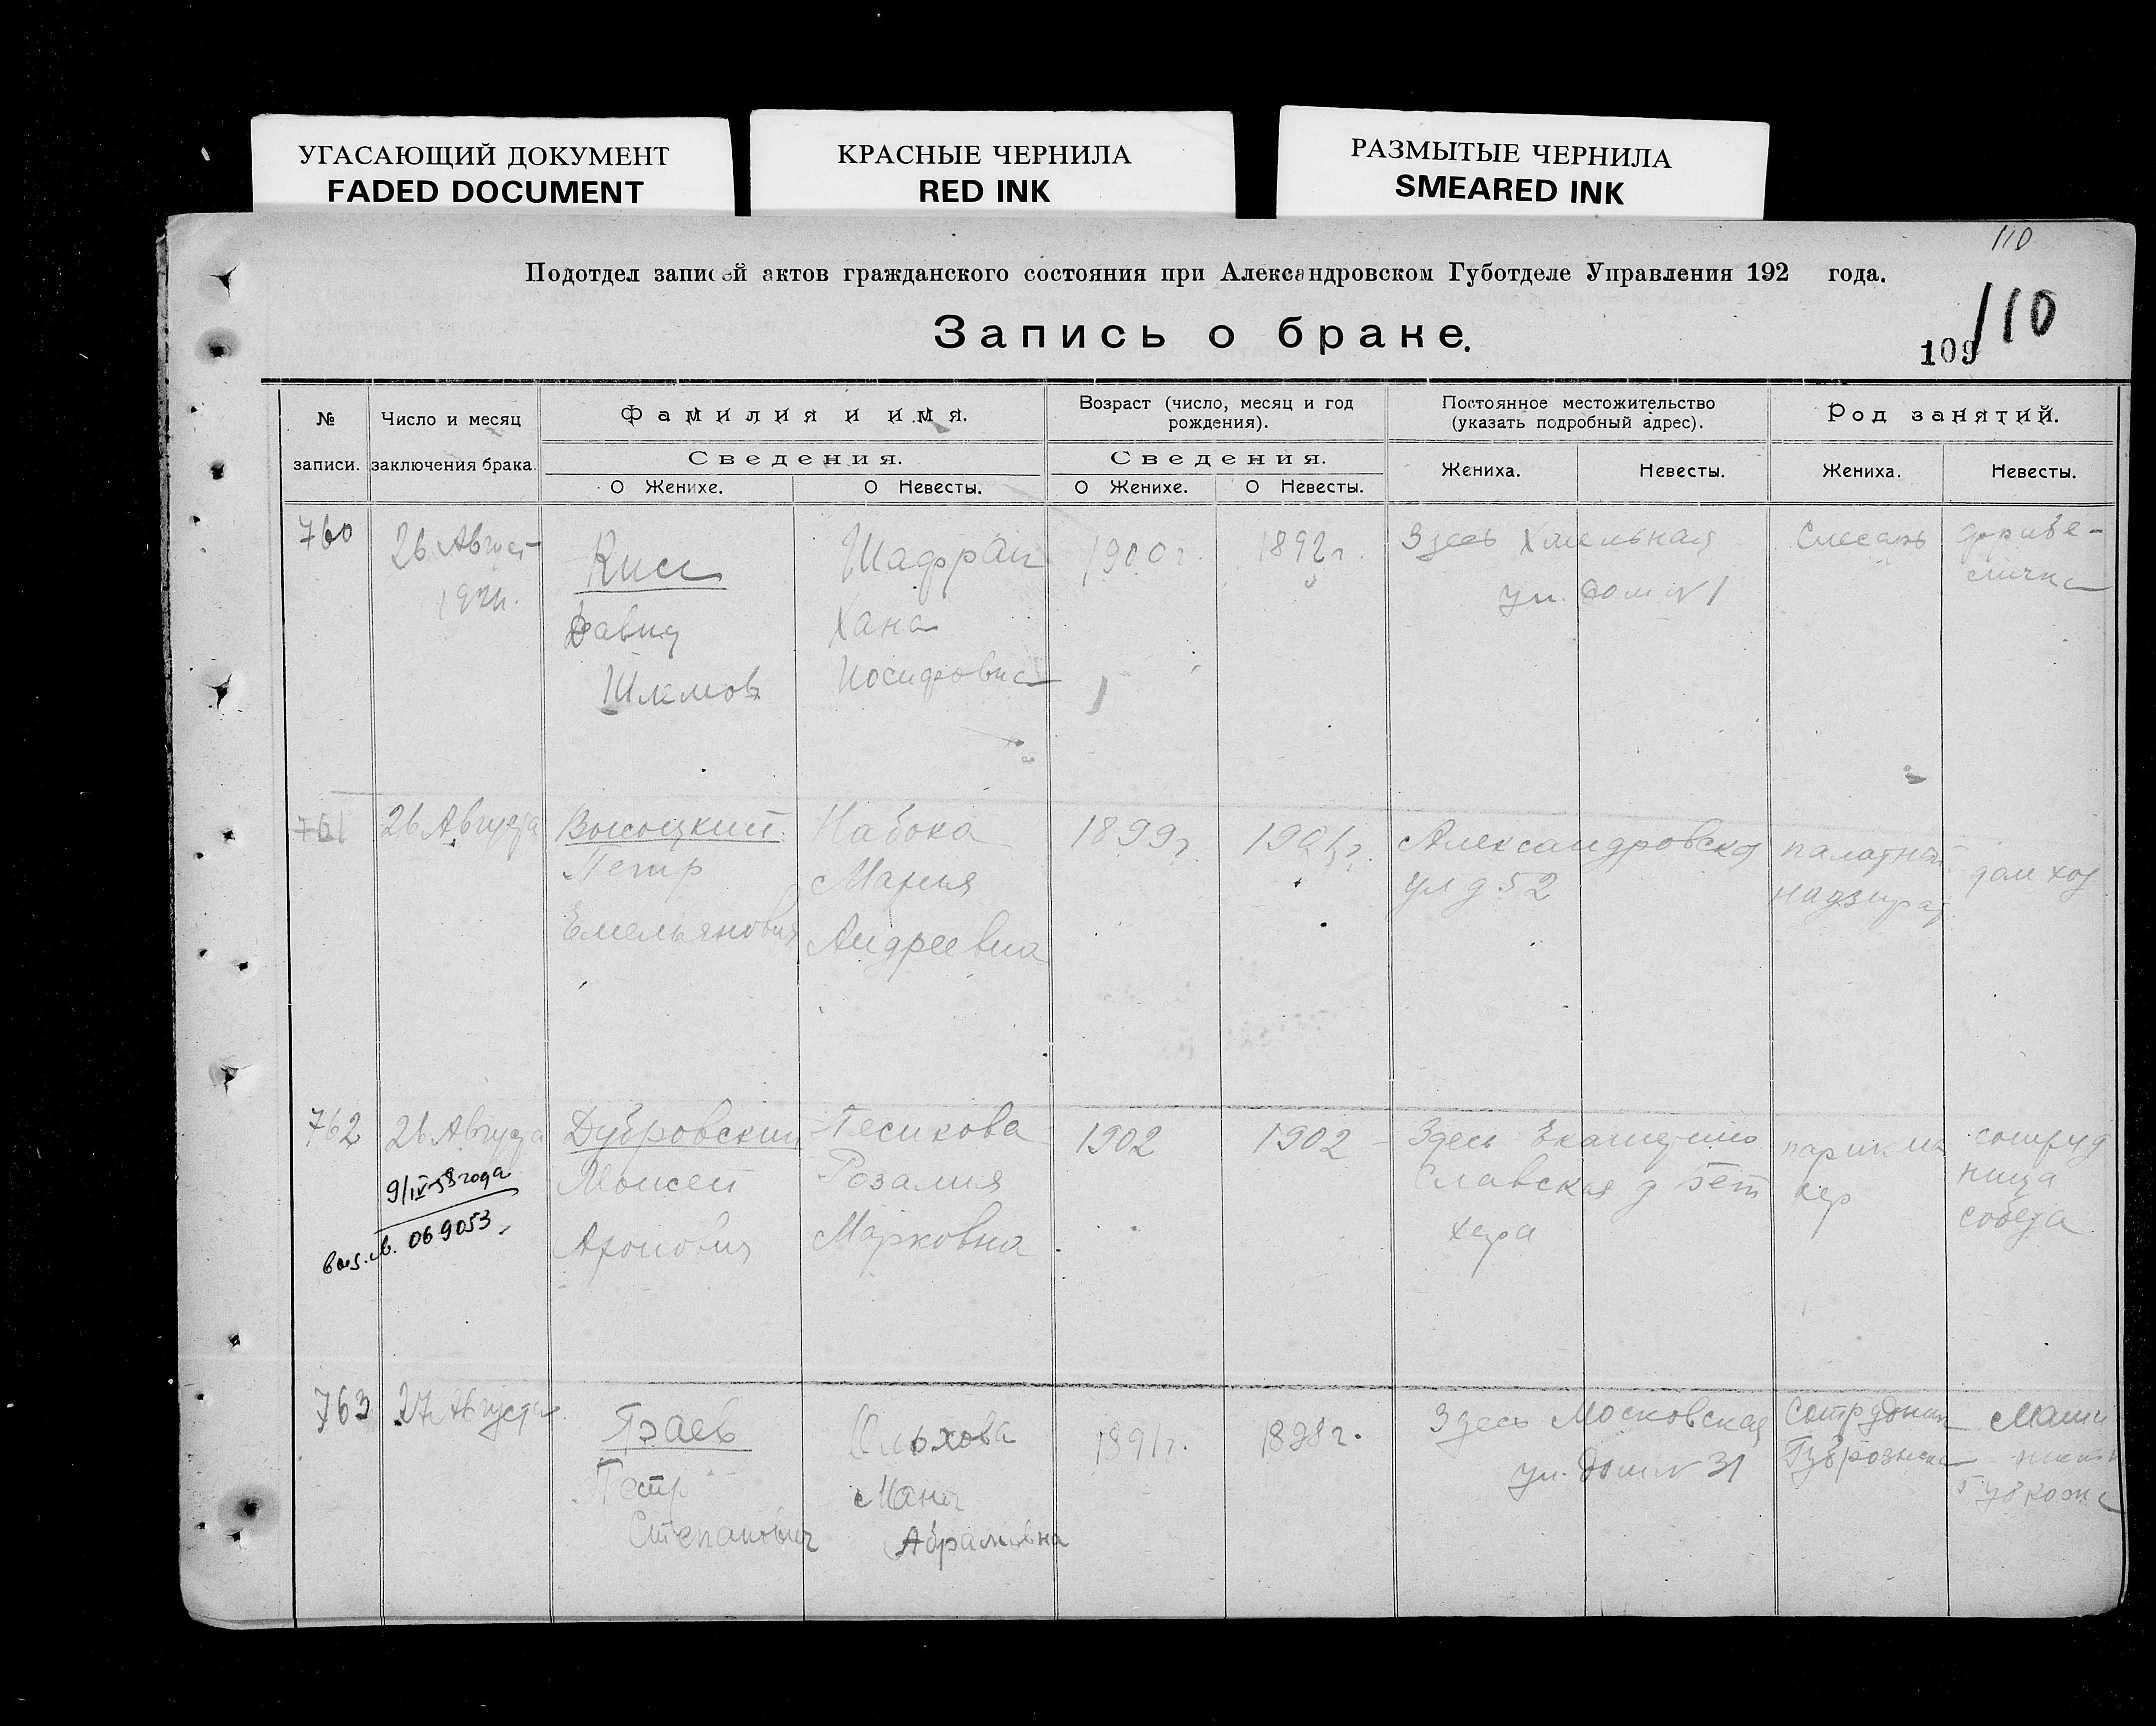 УГАСАЮЩИЙ ДОКУМЕНТ
FADED DOCUMENT
КРАСНЫЕ ЧЕРНИЛА
RED INK
РАЗМЫТЫЕ ЧЕРНИЛА
SMEARED INK
110
Подотдел записей актов гражданского состояния при Александровском Губотделе Управления 192 года.
Запись о браке.
109 110
№ записи.
Число и месяц заключения брака.
Фамилия и имя.
Сведения.
О Женихе.
О Невесты.
Возраст (число, месяц и год рождения).
Сведения.
О Женихе.
О Невесты.
Постоянное местожительство (указать подробный адрес).
Жениха.
Невесты.
Род занятий.
Жениха.
Невесты.
760
26 Август
Кисс
Давид
Шлемов
Шафран
Хана
Иосифовна
1900 г.
1892 г.
Здесь Хмельная
ул. дом № 1
Слесарь
761
26 Августа
Высоцкий
Петр
Емельянович
Набока
Мария
Андреевна
1899 г
1901 г.
Александровская
ул д 52
палатный
надзират
дом хоз
762
26 Августа
9/IV-58 года
выд. св. 069053
Дубровский
Моисей
Аронович
Песикова
Розалия
Марковна
1902
1902
Здесь Екатерино
Славская д
хера
парикма
хер
сотруд
ница
собеза
763
27 Августа
Петр
Степанович
Ольхова
Мания
Абрамовна
1891 г.
1898 г.
Здесь Московская
ул. дом № 31
Сотрудник
Маши